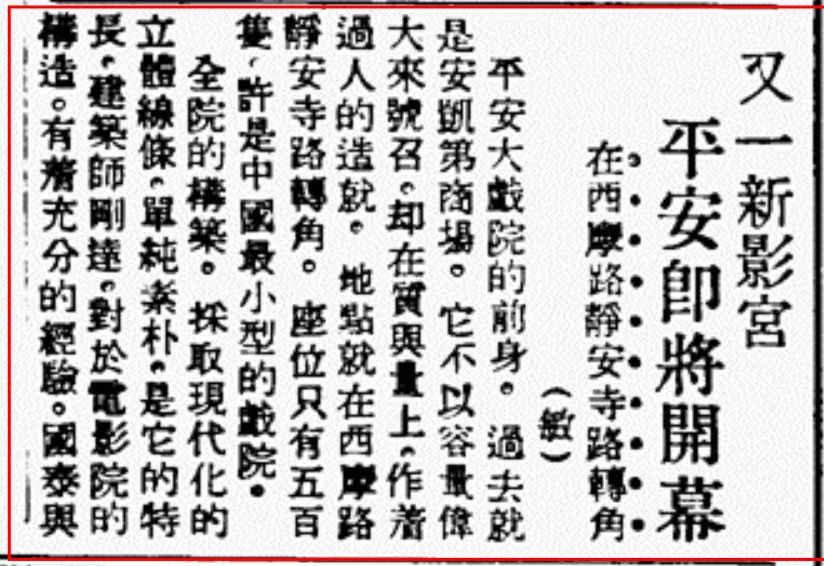 又一新影宮
平安即將開幕
在西摩路靜安寺路轉角
(敏)
平安大戲院的前身。過去就
是安凱第商場。它不以容量偉
大來號召、却在質與量上、作着
過人的造就。地點就在西摩路
靜安寺路轉角。座位只有五百
隻、許是中國最小型的戲院。
全院的構築。採取現代化的
立體線條、單純素朴、是它的特
長、建築師剛達、對於電影院的
構造。有着充分的經驗。國泰與